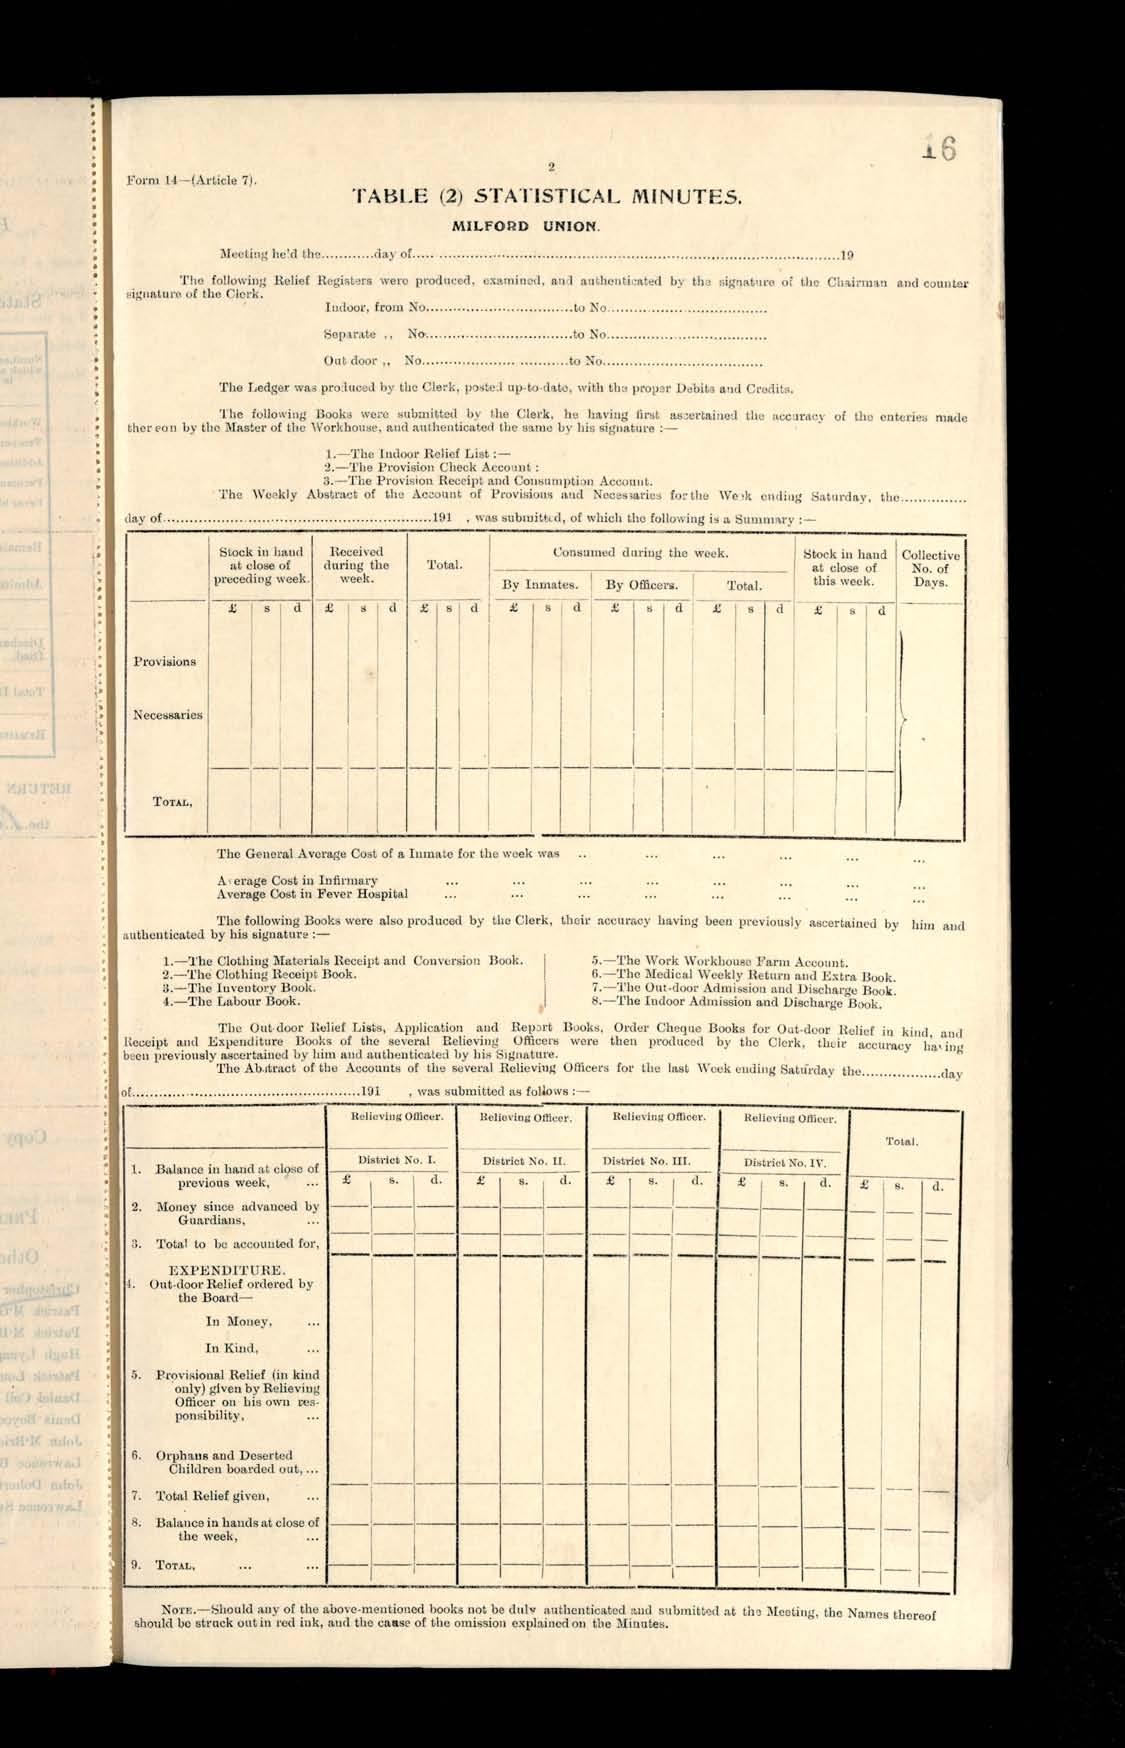 16
2
Form 14—(Article 7).
TABLE (2) STATISTICAL MINUTES.
MILFORD UNION.
Meeting he'd the............day of................................................................19
The following Relief Registers were produced, examined, and authenticated by the signature of the Chairman and counter
signature of the Clerk.
Indoor, from No.................................to No...................................
Separate ,, No.................................to No...................................
Out door ,, No.................................to No...................................
The Ledger was produced by the Clerk, posted up-to-date, with the proper Debits and Credits.
The following Books were submitted by the Clerk, he having first ascertained the accuracy of the enteries made
ther eon by the Master of the Workhouse, and authenticated the same by his signature :—
1.—The Indoor Relief List :—
2.—The Provision Check Account :
3.—The Provision Receipt and Consumption Account.
The Weekly Abstract of the Account of Provisions and Necessaries for the Week ending Saturday, the...............
day of............................................................191 , was submitted, of which the following is a Summary :—
Stock in hand at close of preceding week. Received during the week. Total. Consumed during the week. Stock in hand at close of this week. Collective No. of Days.
By Inmates. By Officers. Total.
£ s d £ s d £ s d £ s d £ s d £ s d £ s d
Provisions
Necessaries
TOTAL,
The General Average Cost of a Inmate for the week was .. ... ... ... ... ...
Average Cost in Infirmary ... ... ... ... ... ... ... ...
Average Cost in Fever Hospital ... ... ... ... ... ... ... ...
The following Books were also produced by the Clerk, their accuracy having been previously ascertained by him and
authenticated by his signature :—
1.—The Clothing Materials Receipt and Conversion Book.
2.—The Clothing Receipt Book.
3.—The Inventory Book.
4.—The Labour Book.
5.—The Work Workhouse Farm Account.
6.—The Medical Weekly Return and Extra Book.
7.—The Out-door Admission and Discharge Book.
8.—The Indoor Admission and Discharge Book.
The Out-door Relief Lists, Application and Report Books, Order Cheque Books for Out-door Relief in kind, and
Receipt and Expenditure Books of the several Relieving Officers were then produced by the Clerk, their accuracy having
been previously ascertained by him and authenticated by his Signature.
The Abstract of the Accounts of the several Relieving Officers for the last Week ending Saturday the..................day
of...................................................191 , was submitted as follows :—
Relieving Officer. Relieving Officer. Relieving Officer. Relieving Officer. Total.
District No. I. District No. II. District No. III. District No. IV.
£ s. d. £ s. d. £ s. d. £ s. d. £ s. d.
1. Balance in hand at close of
previous week, ...
2. Money since advanced by
Guardians, ...
3. Total to be accounted for,
EXPENDITURE.
4. Out-door Relief ordered by
the Board—
In Money, ...
In Kind, ...
5. Provisional Relief (in kind
only) given by Relieving
Officer on his own res-
ponsibility, ...
6. Orphans and Deserted
Children boarded out, ...
7. Total Relief given, ...
8. Balance in hands at close of
the week, ...
9. TOTAL, ... ...
NOTE.—Should any of the above-mentioned books not be duly authenticated and submitted at the Meeting, the Names thereof
should be struck out in red ink, and the cause of the omission explained on the Minutes.